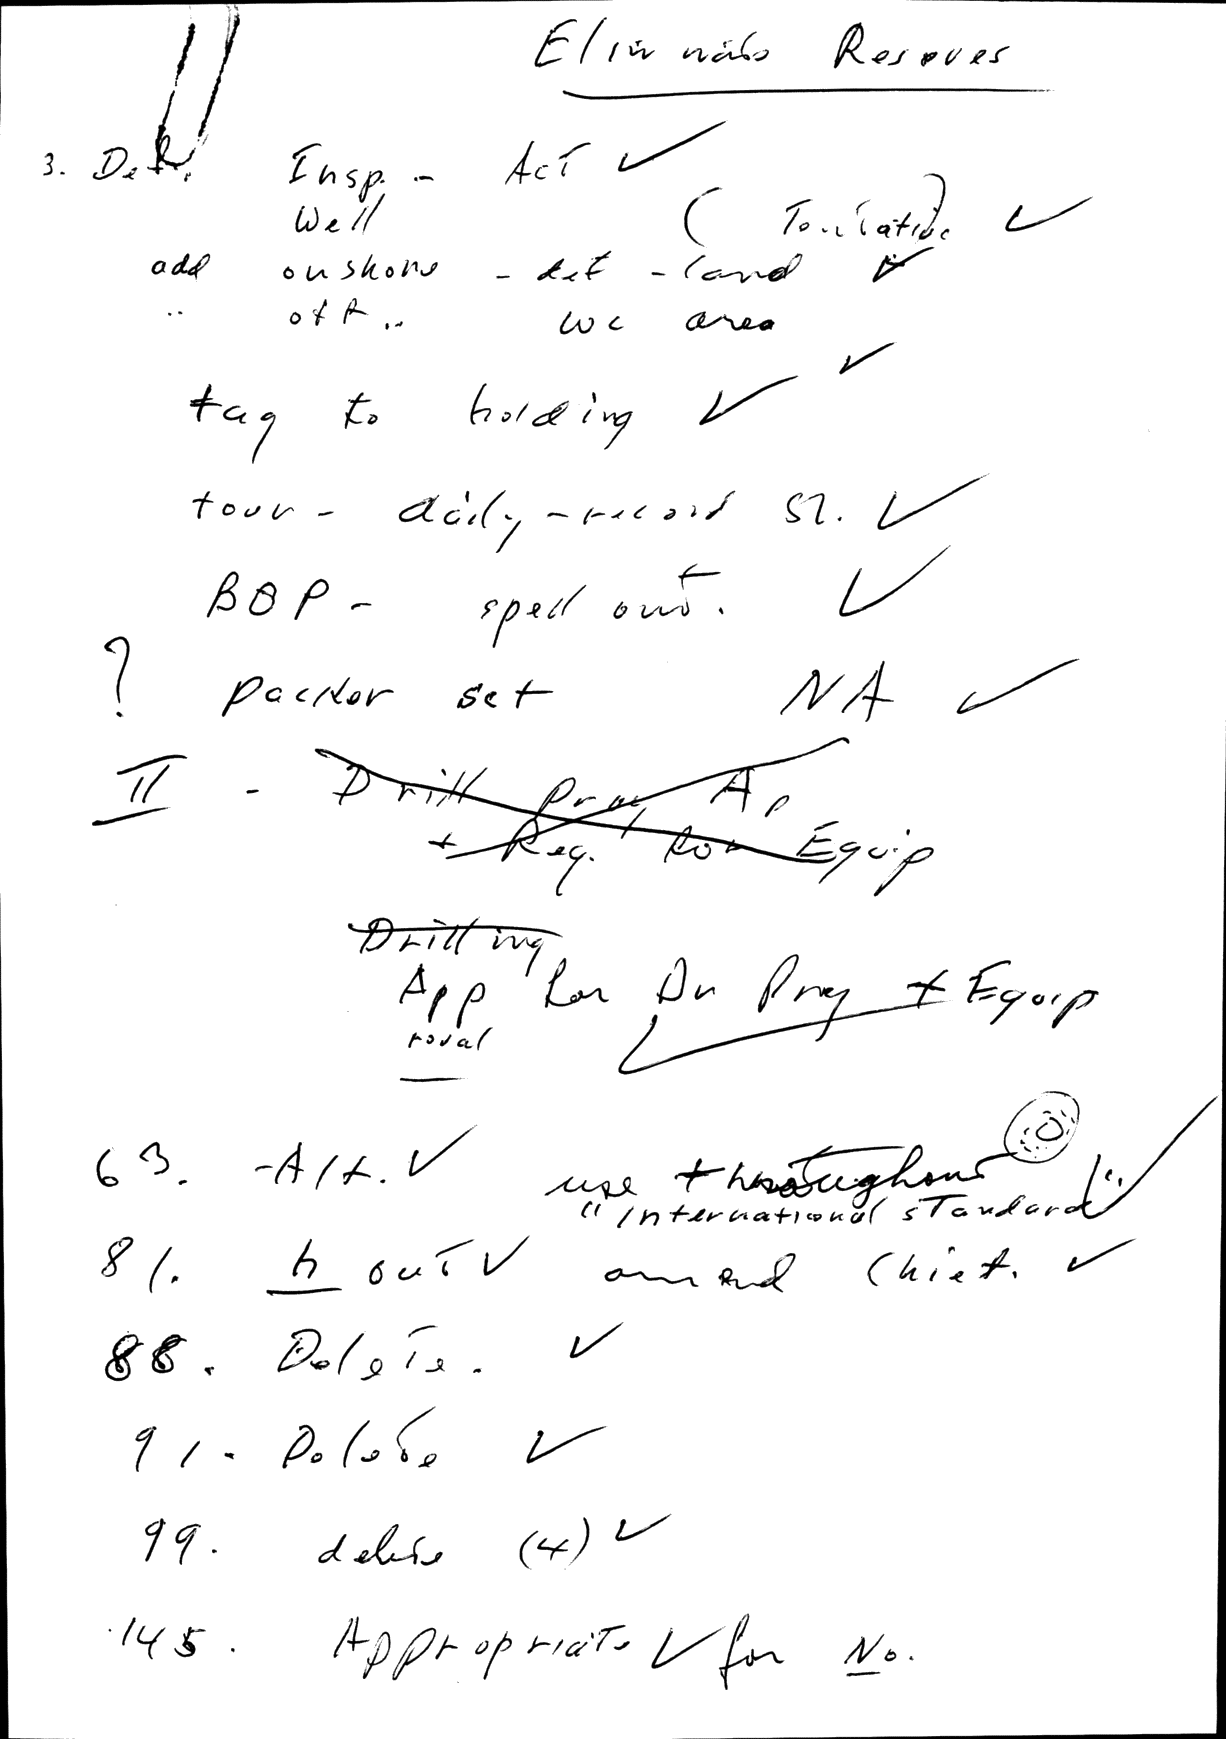 Eliminate Reserves
3. Def. Insp. - Act ✓
Well (Tentative) ✓
add onshore - def - land ✓
" off " we area
✓
tag to holding ✓
tour - daily - record 52. ✓
BOP - spell out. ✓
? packer set NA ✓
II - Drill Prog Ap
+ Req. for Equip
Drilling
App for Dr Prog + Equip
roval
63. - Alt. ✓ use throughout
"International standard" ✓
81. h out ✓ amend Chief. ✓
88. Delete. ✓
91. Delete ✓
99. delete (4) ✓
145. Appropriate ✓ for No.